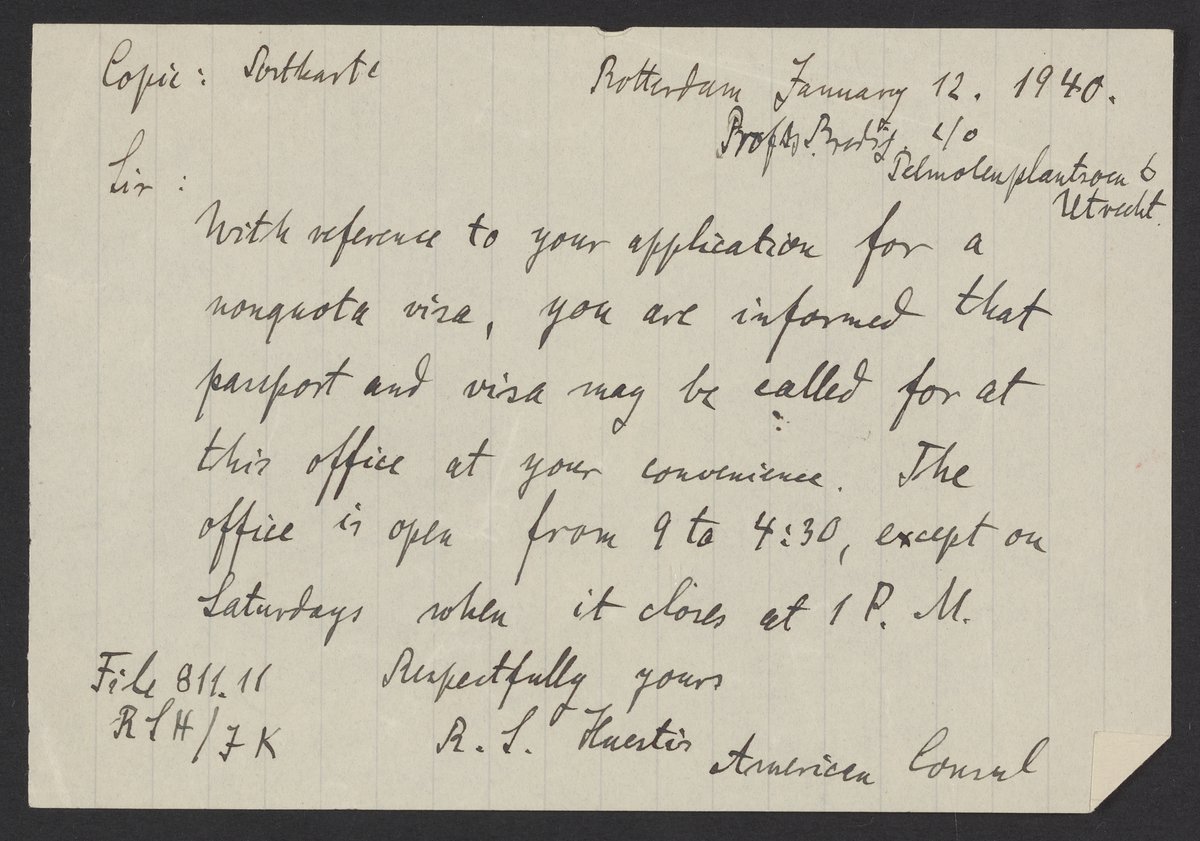 Copie: Postkarte
Rotterdam January 12. 1940.
Prof Dr. Bredig. c/o
Pelmolenplantsoen 6
Utrecht.
Sir:
With reference to your application for a
nonquota visa, you are informed that
passport and visa may be called for at
this office at your convenience. The
office is open from 9 to 4:30, except on
Saturdays when it closes at 1 P. M.
Respectfully yours
File 811.11
RSH/FK
R. S. Huestis
American Consul